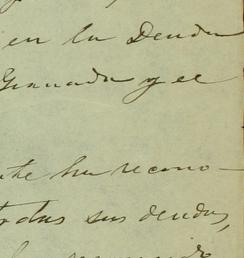 en la Deuda
Granada y el
ha recono-
todas sus deudas,